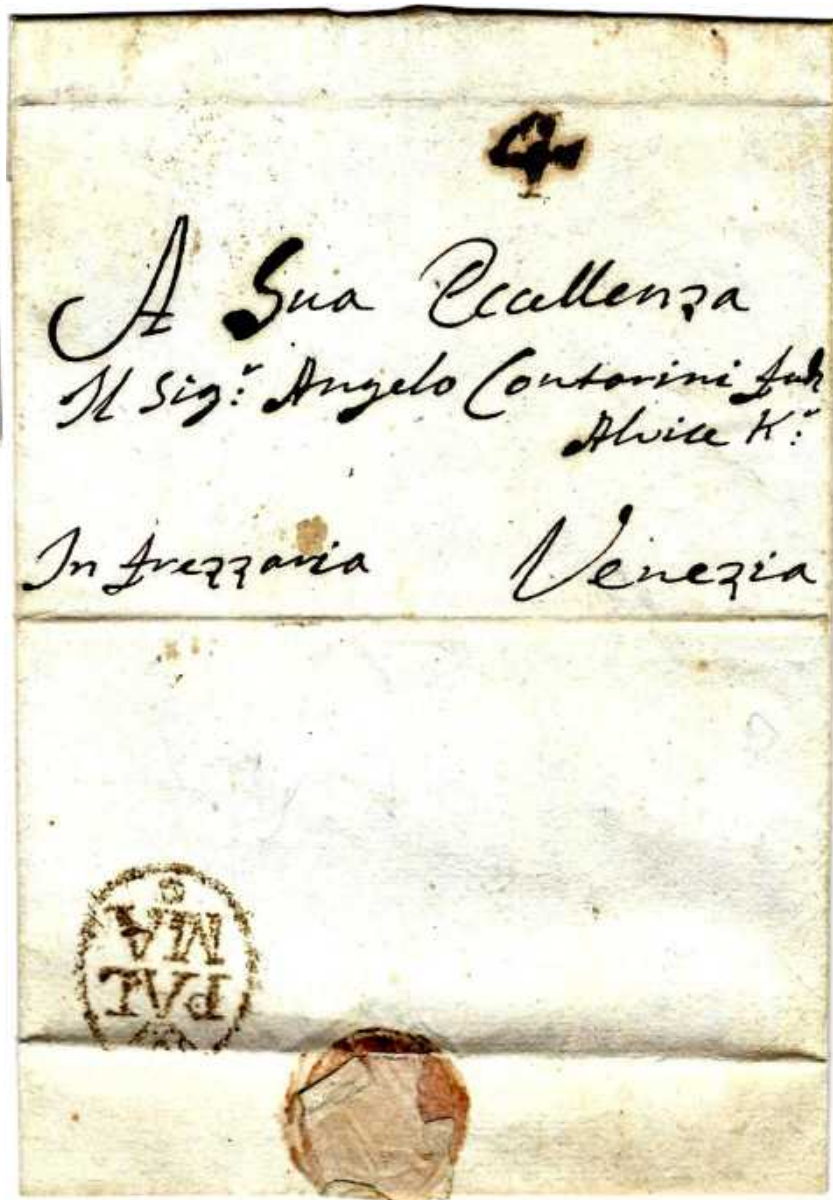 4
A Sua Eccellenza
Il Sig.r Angelo Contarini
Alvise K.r
In frezzaria Venezia
PAL
MA